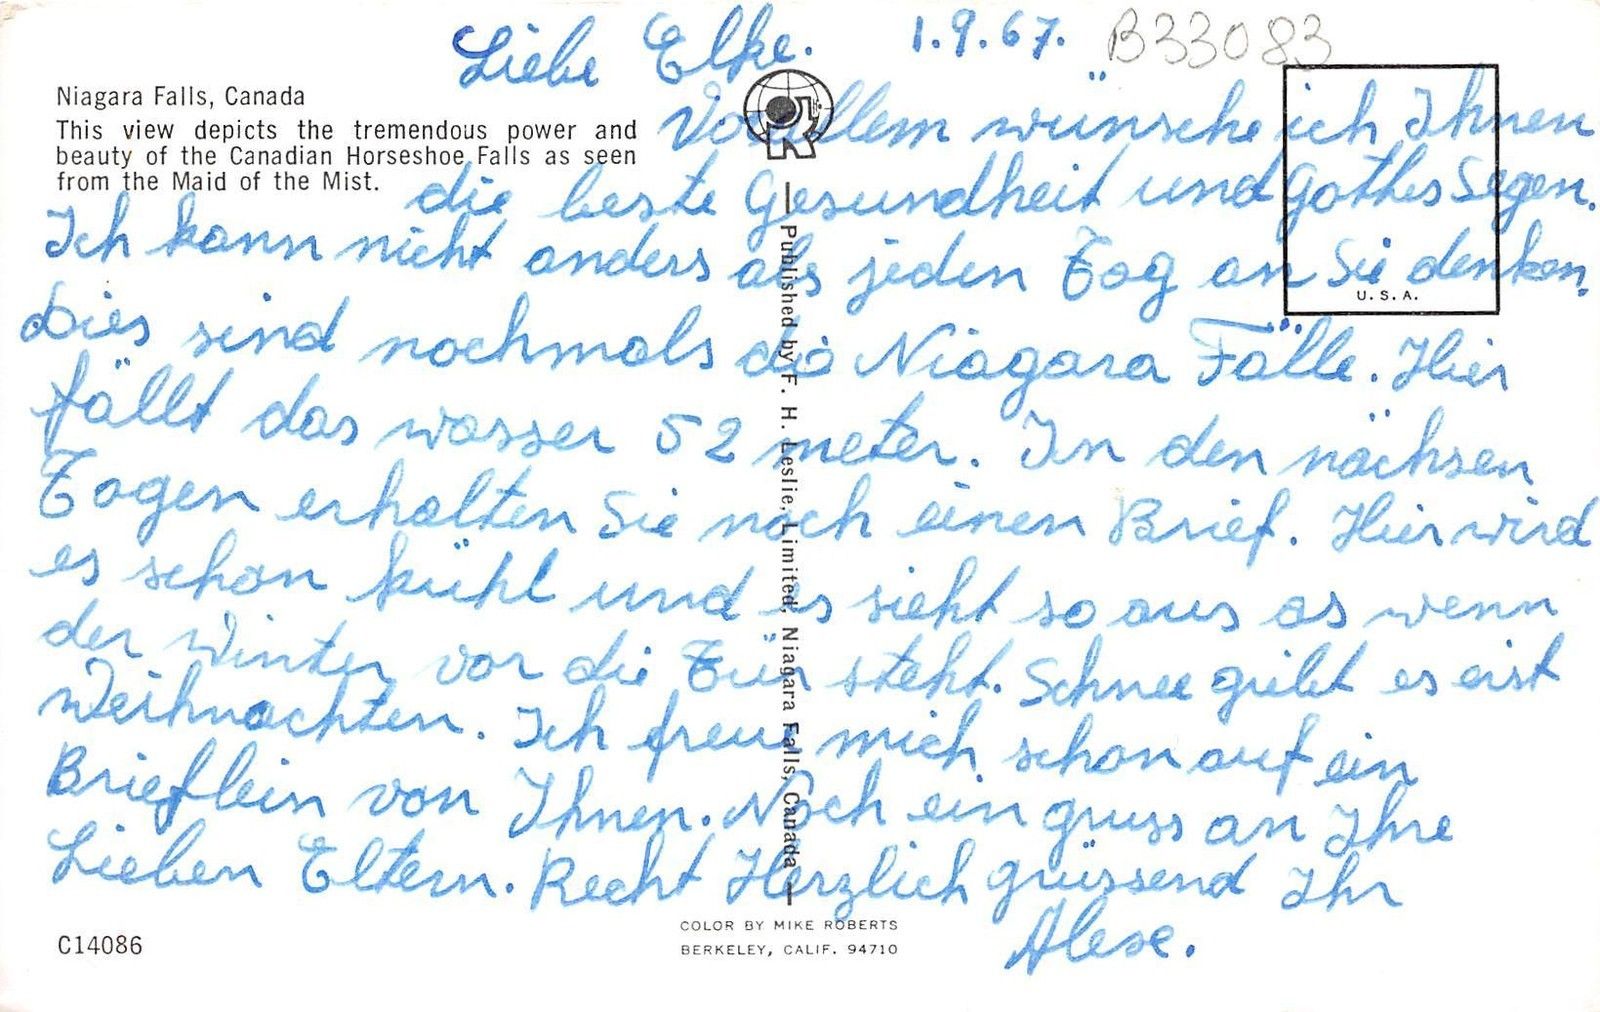 Liebe Elke. 1.9.67. B33083
Niagara Falls, Canada
This view depicts the tremendous power and
beauty of the Canadian Horseshoe Falls as seen
from the Maid of the Mist.
Vor allem wünsche ich Ihnen
die beste Gesundheit und Gothes Segen.
Ich kann nicht anders als jeden Tag an Sie denken.
Dies sind nochmals die Niagara Fälle. Hier
fällt das wasser 52 meter. In den nächsen
Tagen erhalten Sie noch einen Brief. Hier wird
es schon kühl und es sieht so aus as wenn
der Winter vor die Tür steht. Schnee giebt es erst
Weihnachten. Ich freue mich schon auf ein
Brieflein von Ihnen. Noch ein gruss an Ihre
Lieben Eltern. Recht Herzlich grüssend Ihr
U.S.A.
— Published by F. H. Leslie, Limited, Niagara Falls, Canada —
C14086
COLOR BY MIKE ROBERTS
BERKELEY, CALIF. 94710